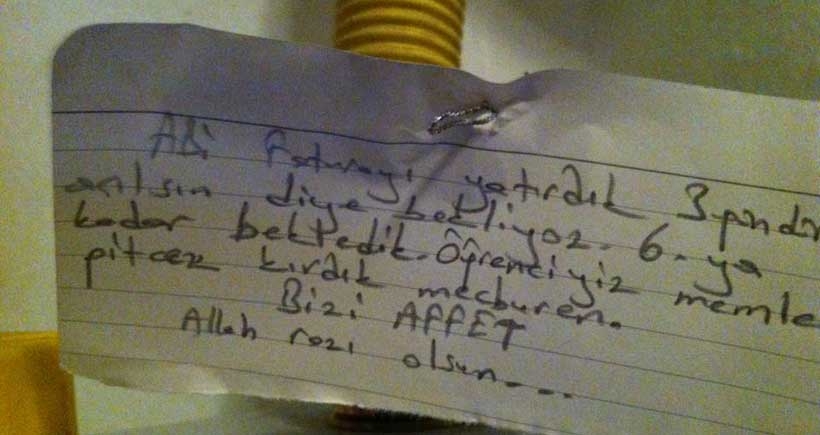 Abi Faturayı yatırdık 3 gündür
açılsın diye bekliyoz. 6. ya
kadar bekledik. Öğrenciyiz memle
gitcez kırdık mecburen.
Bizi AFFET
Allah razı olsun....